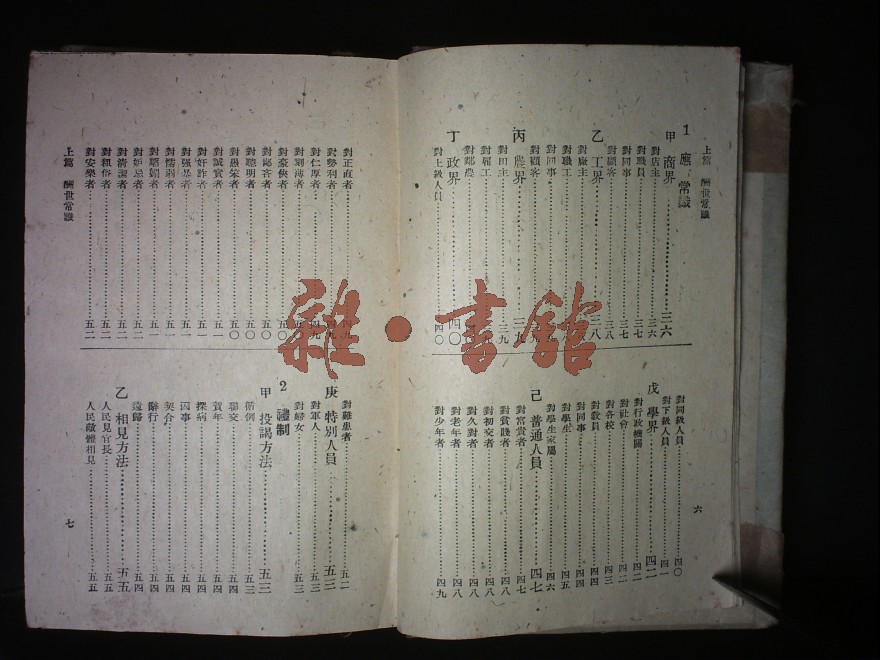 上篇　酬世常識
1　應常識
甲　商界……三六
對店主……三六
對職員……三七
對同事……三七
對顧客……三八
乙　工界……三八
對廠主……
對職工……
對同事……
對顧客……
丙　農界……三九
對田主……三九
對雇工……
對鄰農……
丁　政界……四〇
對上級人員……四〇
對同級人員……四〇
對下級人員……四一
戊　學界……四二
對行政機關……四二
對社會……四二
對各校……四三
對教員……四四
對同事……四四
對學生……四五
對學生家屬……四六
己　普通人員……四七
對富貴者……四七
對貧賤者……四八
對初交者……四八
對久對者……四八
對老年者……四八
對少年者……四九
六
對正直者……四九
對勢利者……四九
對仁厚者……四九
對刻薄者……五〇
對豪俠者……五〇
對鄙吝者……五〇
對聰明者……五〇
對愚笨者……五〇
對誠實者……五一
對奸詐者……五一
對强暴者……五一
對懦弱者……五一
對媚者……五一
對妒忌者……五二
對清潔者……五二
對粗俗者……五二
對安樂者……五二
上篇　酬世常識
對難患者……五二
庚　特別人員……五三
對軍人……五三
對婦女……五三
2　禮制
甲　投謁方法……五三
循例……五三
聯交……五四
賀年……五四
探病……五四
因事……五四
契合……五四
辭行……五四
遠歸……五四
乙　相見方法……五五
人民見官長……五五
人民敵體相見……五五
七
雜·書館